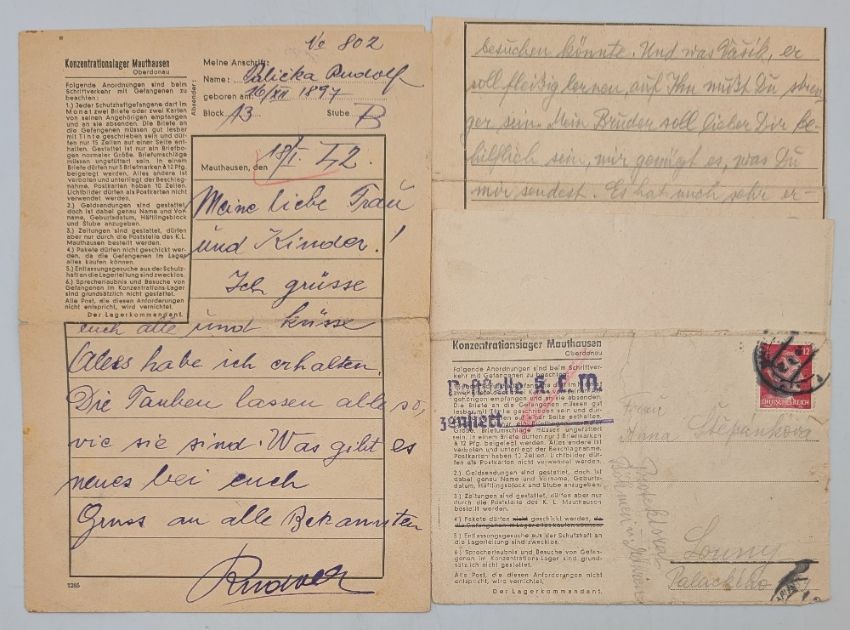 No 802
Konzentrationslager Mauthausen
Oberdonau
Folgende Anordnungen sind beim
Schriftverkehr mit Gefangenen zu
beachten:
1.) Jeder Schutzhaftgefangene darf im
Monat zwei Briefe oder zwei Karten
von seinen Angehörigen empfangen
und an sie absenden. Die Briefe an
die Gefangenen müssen gut lesbar
mit Tinte geschrieben sein und dür-
fen nur 15 Zeilen auf einer Seite ent-
halten. Gestattet ist nur ein Briefbo-
gen normaler Größe. Briefumschläge
müssen ungefüttert sein. In einem
Briefe dürfen nur 5 Briefmarken à 12 Pfg.
beigelegt werden. Alles andere ist
verboten und unterliegt der Beschlag-
nahme. Postkarten haben 10 Zeilen.
Lichtbilder dürfen als Postkarten nicht
verwendet werden.
2.) Geldsendungen sind gestattet,
doch ist dabei genau Name und Vor-
name, Geburtsdatum, Häftlingsblock
und Stube anzugeben.
3.) Zeitungen sind gestattet, dürfen
aber nur durch die Poststelle des K. L.
Mauthausen bestellt werden.
4.) Pakete dürfen nicht geschickt wer-
den, da die Gefangenen im Lager
alles kaufen können.
5.) Entlassungsgesuche aus der Schutz-
haft an die Lagerleitung sind zwecklos.
6.) Sprecherlaubnis und Besuche von
Gefangenen im Konzentrations-Lager
sind grundsätzlich nicht gestattet.
Alle Post, die diesen Anforderungen
nicht entspricht, wird vernichtet.
Der Lagerkommandant.
Absender:
Meine Anschrift:
Name: Palička Rudolf
geboren am: 16/XII 1897
Block 13 Stube B
Mauthausen, den 18/I. 42.
Meine liebe Frau
und Kinder!
Ich grüsse
euch alle und küsse
Aless habe ich erhalten.
Die Tauben lassen alle so,
wie sie sind. Was gibt es
neues bei euch
Gruss an alle Bekannsten
Rudolf
1265
besuchen könnte. Und was Vašík, er
soll fleißig lernen, auf Ihn mußt Du stren-
ger sein. Mein Bruder soll lieber Dir be-
hilflich sein, mir genügt es, was Du
mir sendest. Es hat mich sehr er-
Konzentrationslager Mauthausen
Oberdonau
Folgende Anordnungen sind beim Schriftver-
kehr mit Gefangenen zu beachten:
Poststelle K.L.M.
zensiert
2.) Geldsendungen sind gestattet, doch ist
dabei genau Name und Vorname, Geburts-
datum, Häftlingsblock und Stube anzugeben.
3.) Zeitungen sind gestattet, dürfen aber nur
durch die Poststelle des K. L. Mauthausen
bestellt werden.
4.) Pakete dürfen nicht geschickt werden, da
die Gefangenen im Lager alles kaufen können.
5.) Entlassungsgesuche aus der Schutzhaft an
die Lagerleitung sind zwecklos.
6.) Sprecherlaubnis und Besuche von Gefan-
genen im Konzentrations-Lager sind grund-
sätzlich nicht gestattet.
Alle Post, die diesen Anforderungen nicht
entspricht, wird vernichtet.
Der Lagerkommandant.
12
DEUTSCHES REICH
Frau
Anna Štěpánková
Louny
Palackého
Protektorat
Böhmen u. Mähren